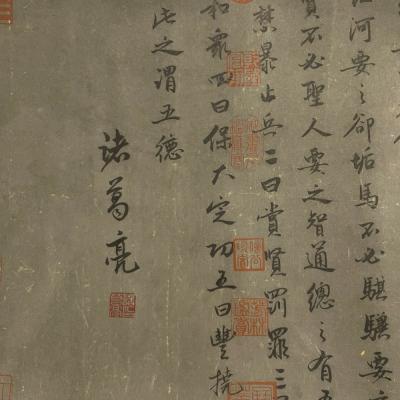 河要之卻垢馬不必騏驥要
不必聖人要之智通總之有
禁暴止兵二曰賞賢罰罪三
和衆四曰保大定功五曰豐撓
此之謂五德
諸葛亮